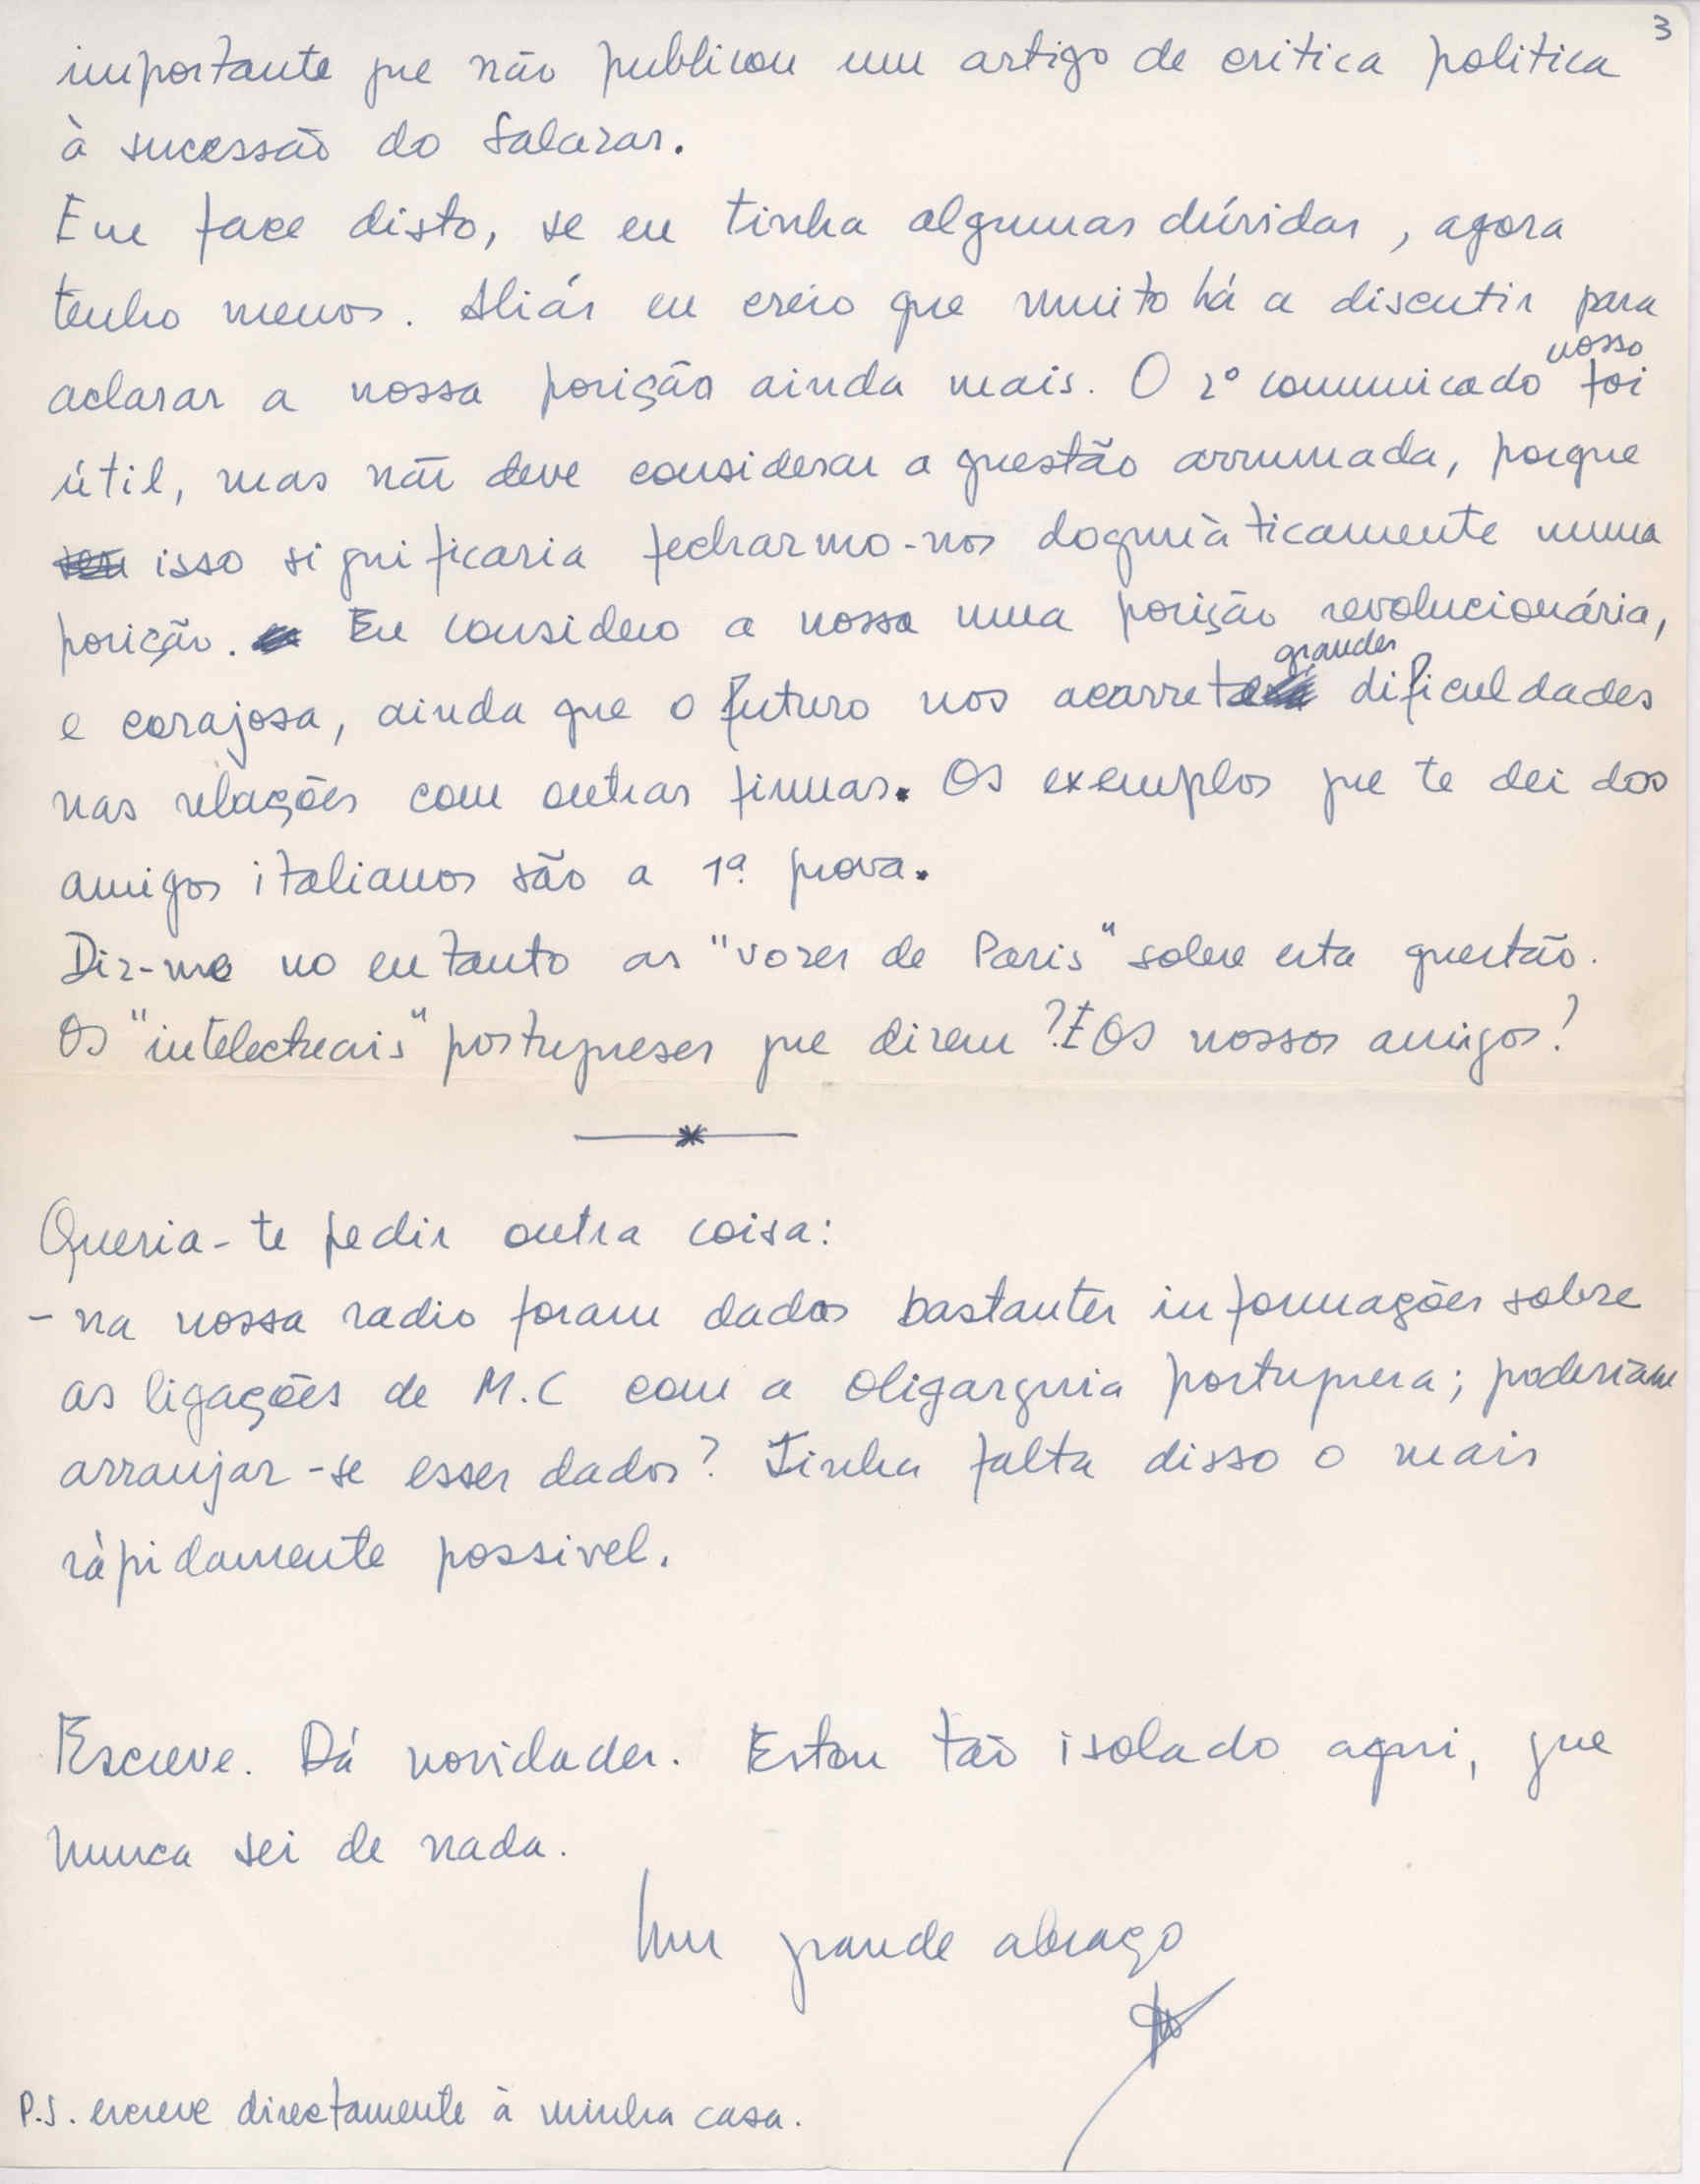 3
importante que não publicou um artigo de critica politica
à sucessão do Salazar.
Em face disto, se eu tinha algumas dúvidas, agora
tenho menos. Aliás eu creio que muito há a discutir para
aclarar a nossa posição ainda mais. O 2º comunicado nosso foi
útil, mas não deve considerar a questão arrumada, porque
isso significaria fecharmo-nos dogmàticamente numa
posição. Eu considero a nossa uma posição revolucionária,
e corajosa, ainda que o futuro nos acarrete grandes dificuldades
nas relações com outras firmas. Os exemplos que te dei dos
amigos italianos são a 1ª prova.
Diz-me no entanto as "vozes de Paris" sobre esta questão.
Os "intelectuais" portugueses que dizem? E os nossos amigos?
Queria-te pedir outra coisa:
- na nossa radio foram dados bastantes informações sobre
as ligações de M.C com a oligarquia portuguesa; poderiam
arranjar-se esses dados? Tinha falta disso o mais
ràpidamente possivel.
Escreve. Dá novidades. Estou tão isolado aqui, que
nunca sei de nada.
Um grande abraço
P.S. escreve directamente à minha casa.